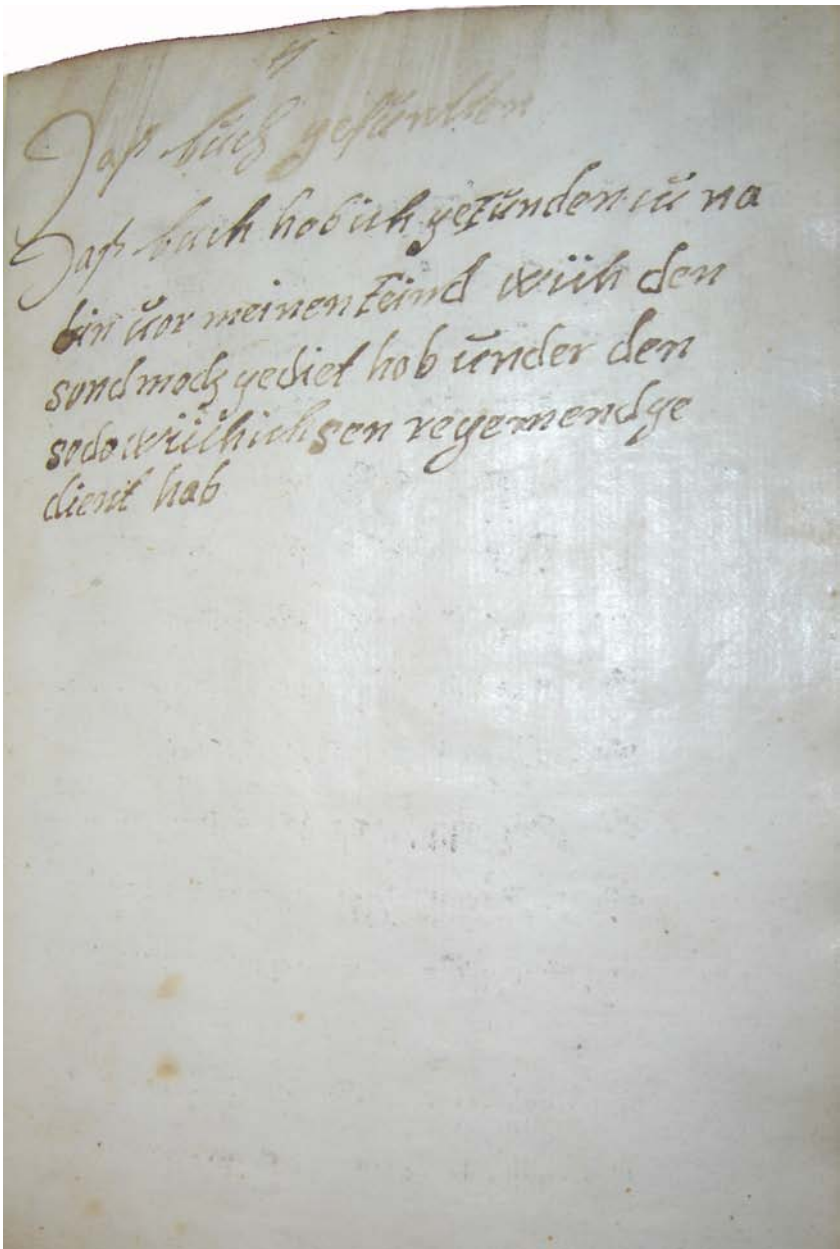 Daß büch gefunden
Daß buch hob ich gefunden ŭ na
bin ŭor meinen feind wüh den
sond modz gediet hob ŭnder den
sodowüchichsen regemend ge
dient hab